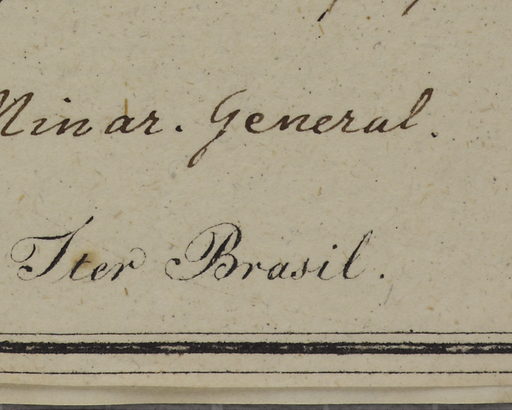 Minar. General.
Iter Brasil.